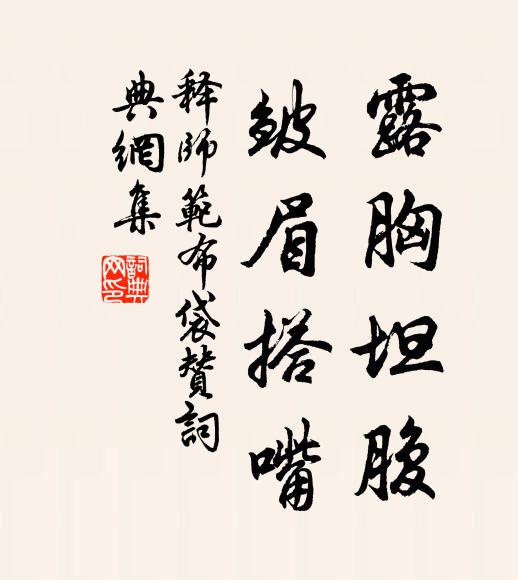 露胸坦腹
皺眉搭嘴
释師範布袋赞詞
典網集
詞典網印